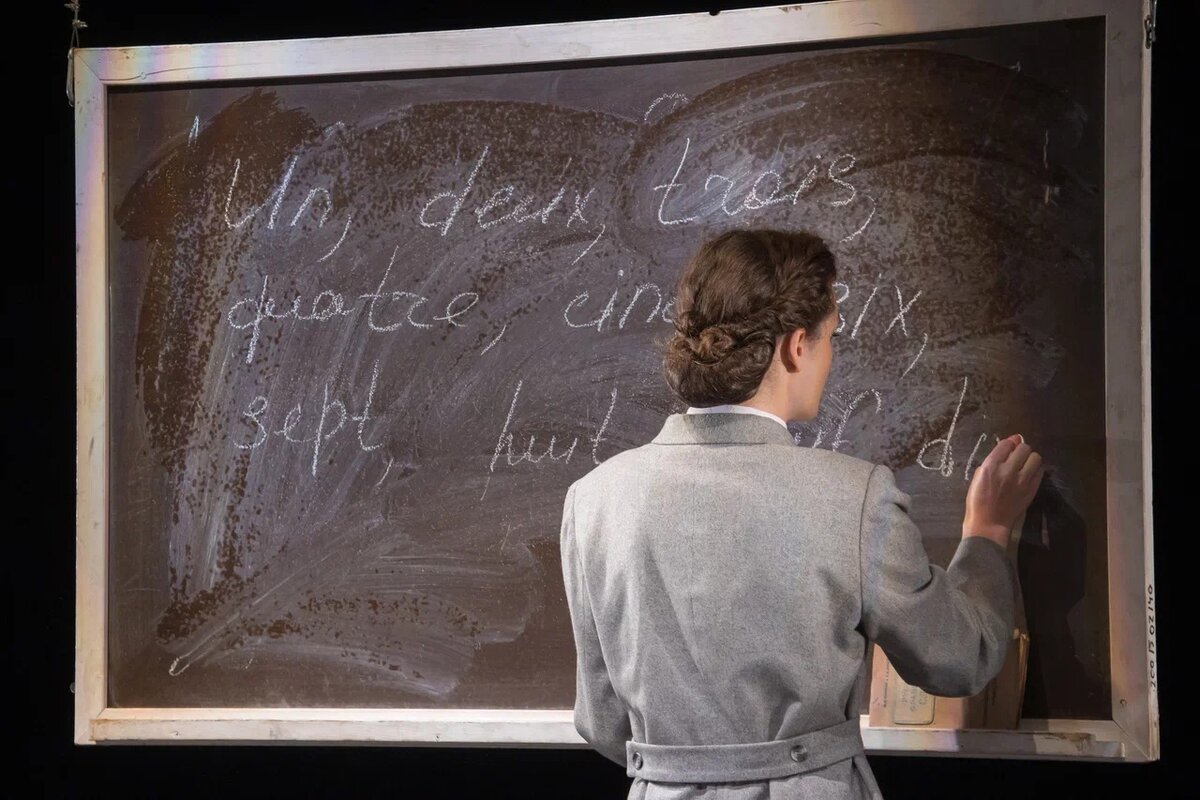 Un, deux, trois,
quatre, cin six,
sept, huit di